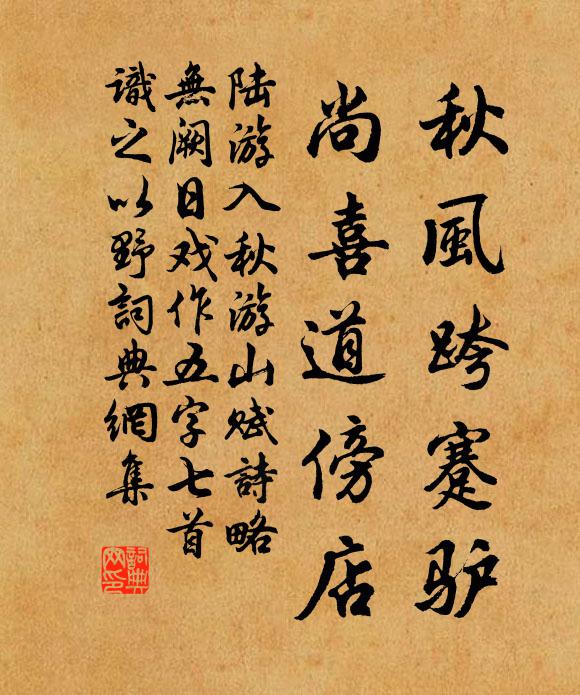 秋風跨蹇驴
尚喜道傍店
陆游入秋游山赋詩略
無阙日戏作五字七首
識之以野詞典網集
詞典网印